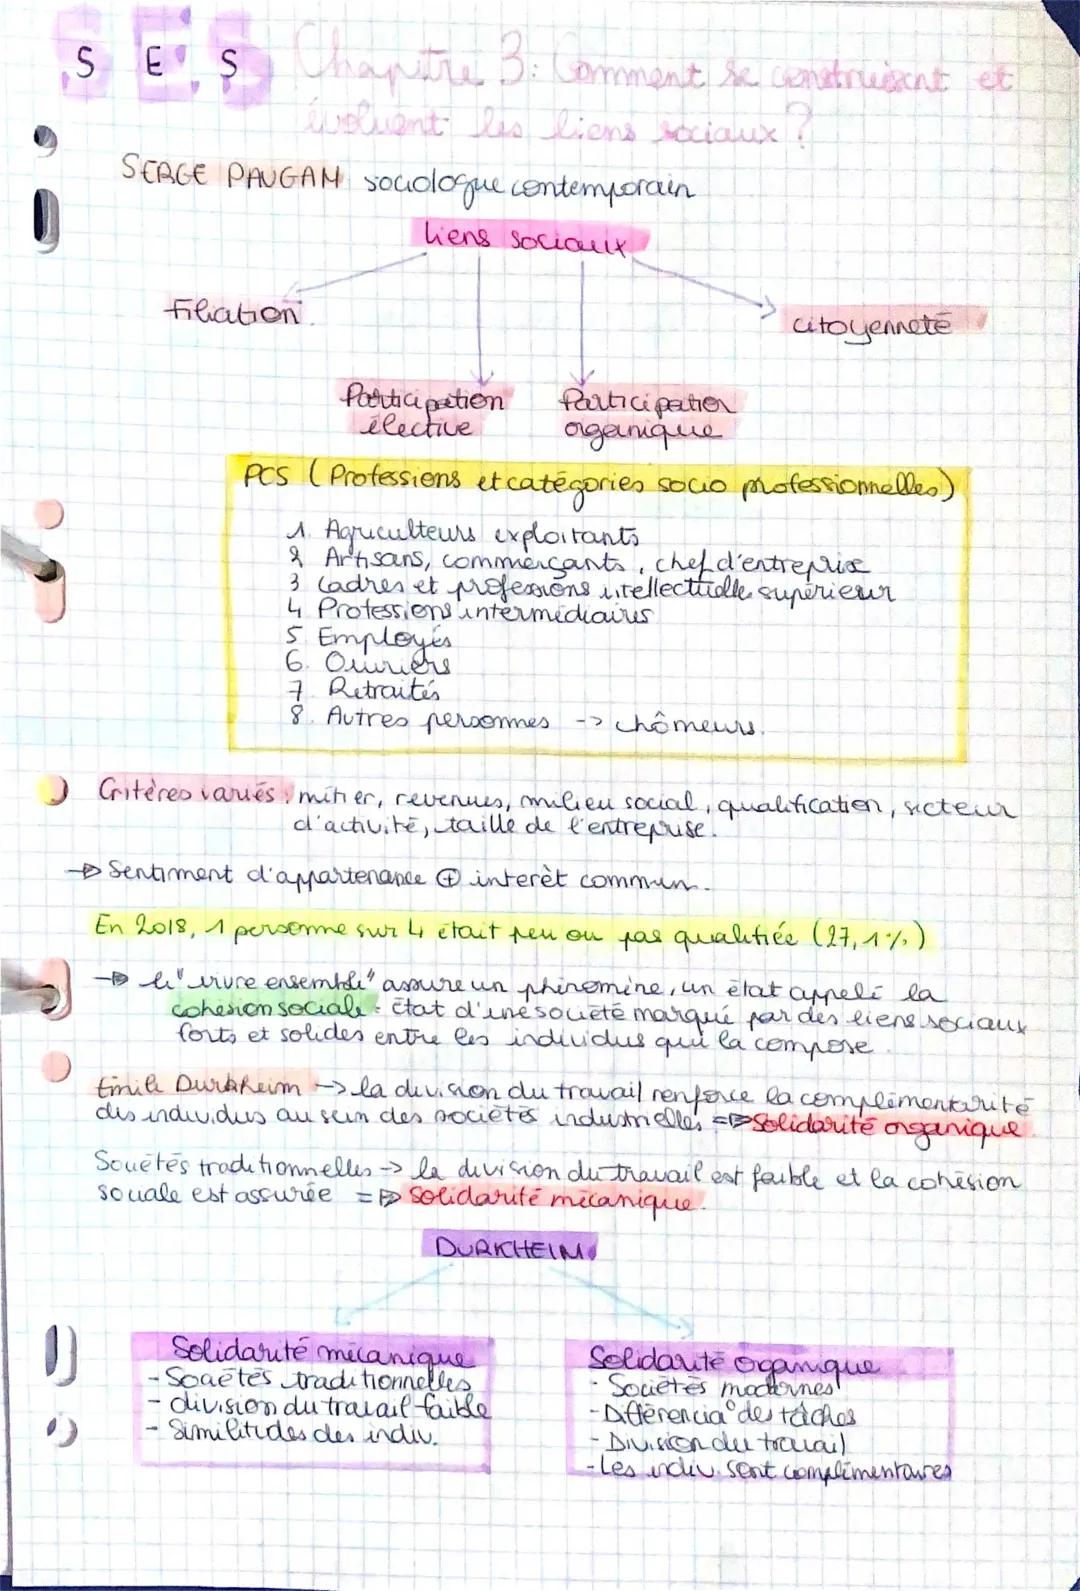 S E S Chapitre 3: Comment se construisent et
évoluent les liens sociaux ?
SERGE PAUGAM sociologue contemporain
liens sociaux
Filiation
citoyenneté
Participation
élective
Participation
organique
PCS (Professions et catégories socio professionnelles)
1. Agriculteurs exploitants
2 Artisans, commerçants, chef d'entreprise
3 Cadres et professions intellectuelle supérieur
4 Professions intermédiaires
5 Employés
6. Ouvriers
7. Retraités
8. Autres personnes -> chômeurs.
Critères variés : métier, revenues, milieu social, qualification, secteur
d'activité, taille de l'entreprise.
→ Sentiment d'appartenance ⊕ interêt commun.
En 2018, 1 personne sur 4 était peu ou pas qualifiée (27,1%)
→ le "vivre ensemble" assure un phénomène, un état appelé la
cohésion sociale : état d'une société marqué par des liens sociaux
forts et solides entre les individus qui la compose.
Emile Durkheim -> la division du travail renforce la complémentarité
des individus au sein des sociétés industrielles => Solidarité organique
Sociétés traditionnelles -> la division du travail est faible et la cohésion
sociale est assurée => solidarité mécanique.
DURKHEIM
Solidarité mécanique
- Sociétés traditionnelles
- division du travail faible
- Similitudes des indiv.
Solidarité organique
- Sociétés modernes
- Différencia° des tâches
- Division du travail
- Les indiv. sont complémentaires